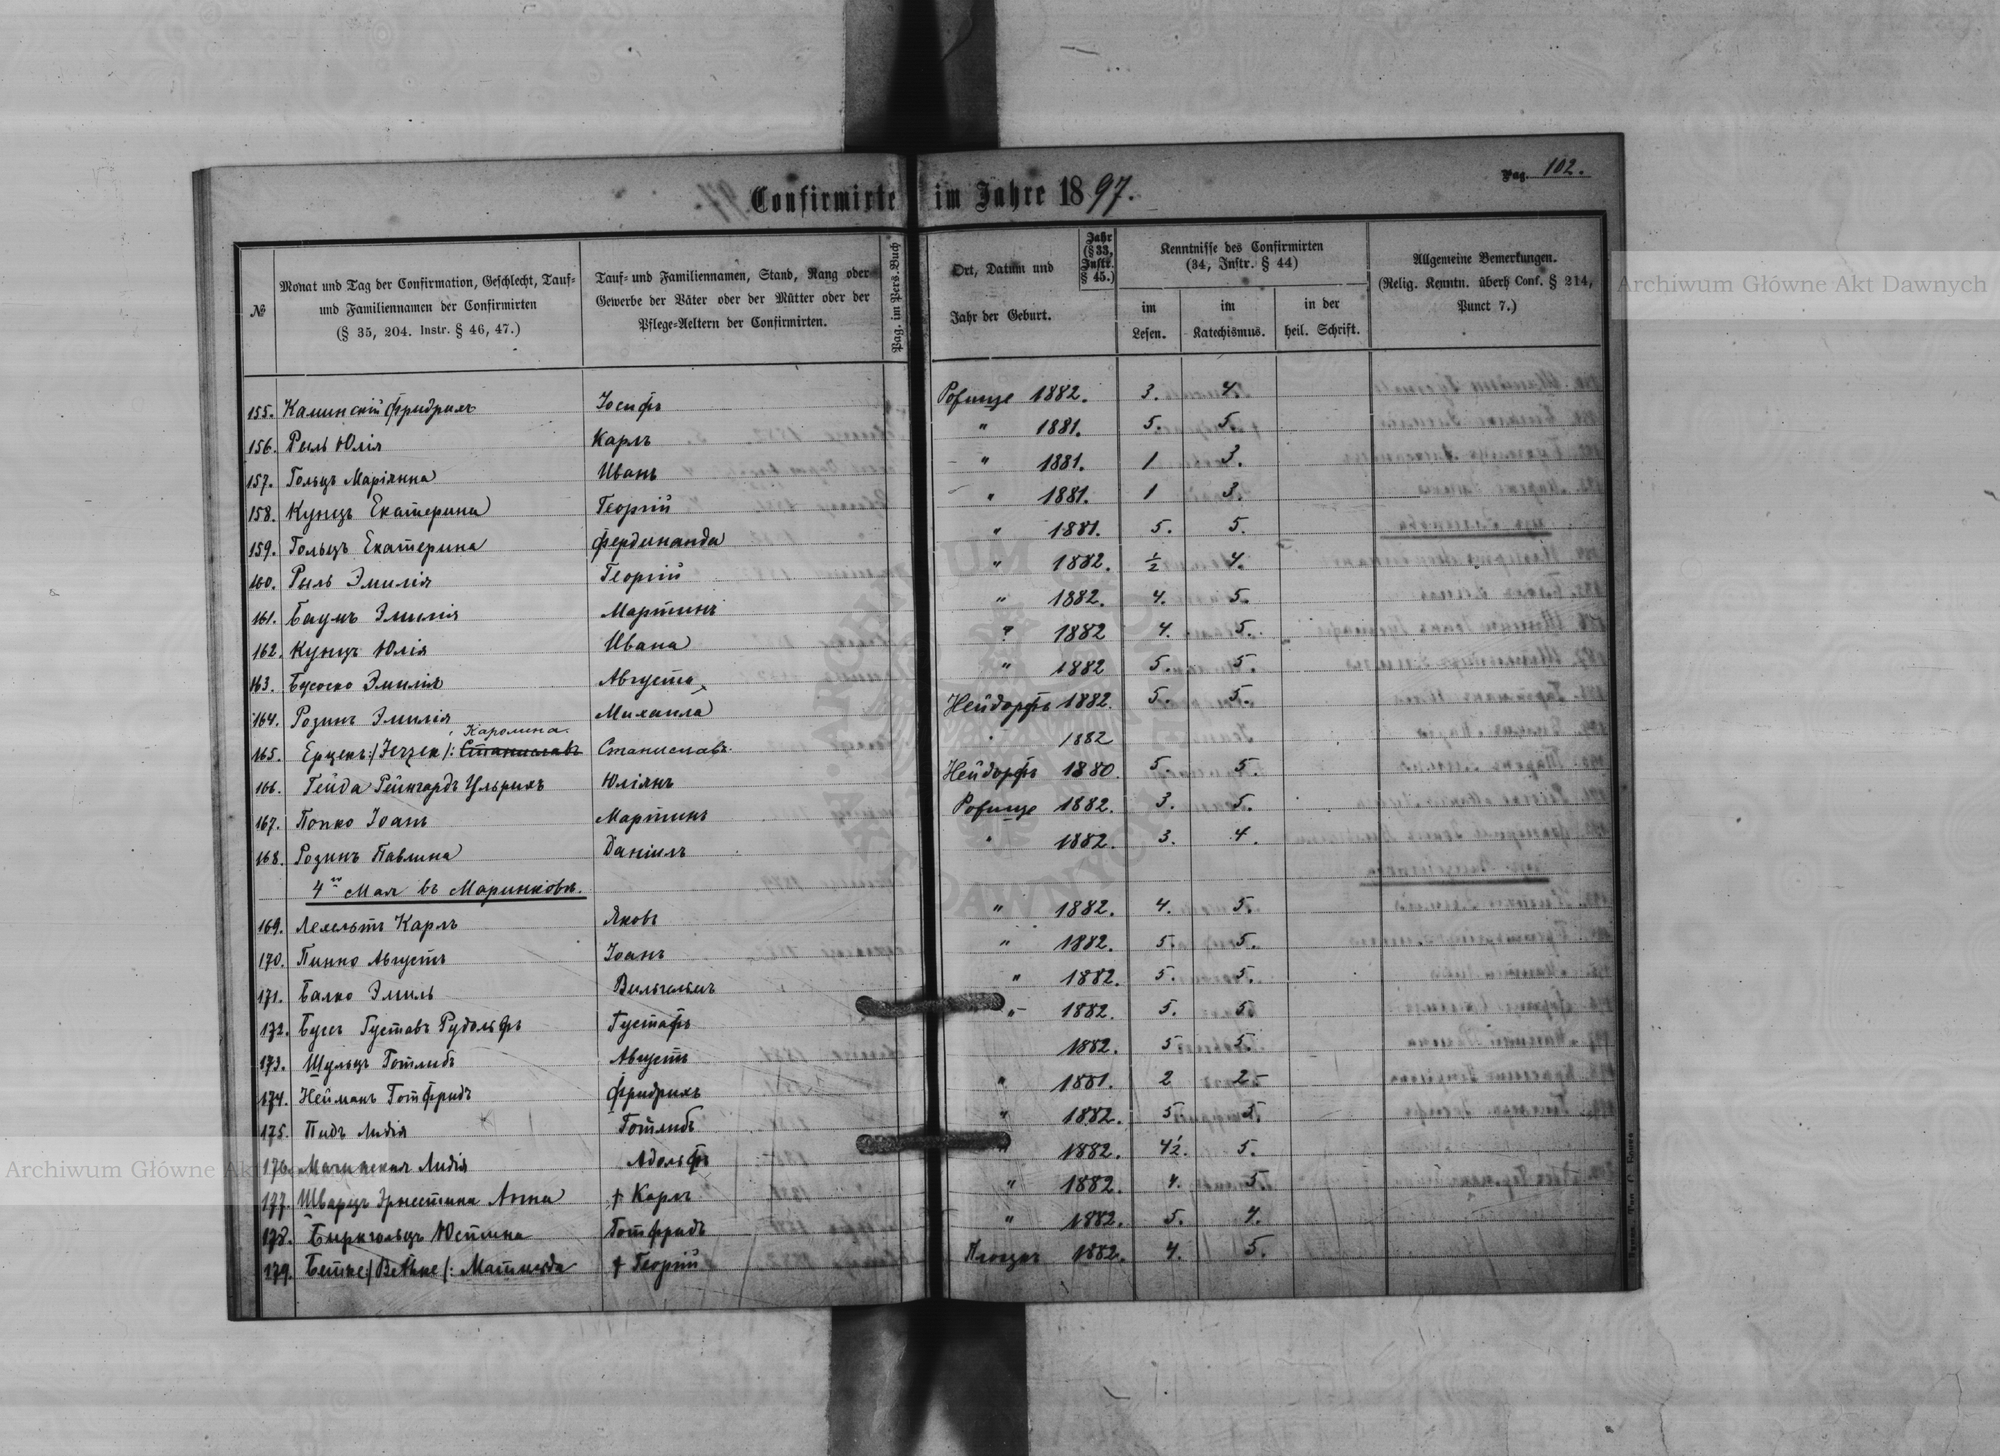 Pag. 102.
Confirmirte im Jahre 1897.
№
Monat und Tag der Confirmation, Geschlecht, Tauf- und Familiennamen der Confirmirten (§ 35, 204. Instr. § 46, 47.)
Tauf- und Familiennamen, Stand, Rang oder Gewerbe der Väter oder der Mütter oder der Pflege-Aeltern der Confirmirten.
Pag. im Pers.Buch
Ort, Datum und Jahr der Geburt.
Jahr (§ 33, Instr. § 45.)
Kenntnisse des Confirmirten (34, Instr. § 44)
im Lesen.
im Katechismus.
in der heil. Schrift.
Allgemeine Bemerkungen. (Relig. Kenntn. überh Conf. § 214, Punct 7.)
155. Каминскій Фридрихъ Іосифъ Рожище 1882. 3. 4.
156. Рыль Юлія Карлъ " 1881. 5. 5.
157. Гольцъ Маріянна Иванъ " 1881. 1 3.
158. Кунцъ Екатерина Георгій " 1881. 1 3.
159. Гольцъ Екатерина Фердинанда " 1881. 5. 5.
160. Рыль Эмилія Георгій " 1882. ½ 4.
161. Баумъ Эмилія Мартинъ " 1882. 4. 5.
162. Кунцъ Юлія Ивана " 1882 4. 5.
163. Бусско Эмилія Августа " 1882 5. 5.
164. Розинъ Эмилія Михаила Нейдорфъ 1882. 5. 5.
Каролина
165. Ерцекъ :/Jerzek/: Станиславъ Станиславъ " 1882
166. Гейда Рейнгардъ Ульрихъ Юліянъ Нейдорфъ 1880. 5. 5.
167. Попко Іоанъ Мартинъ Рожище 1882. 3. 5.
168. Розинъ Павлина Даніилъ " 1882. 3. 4.
4го Мая въ Маринковѣ.
169. Лехельтъ Карлъ Яковъ " 1882. 4. 5.
170. Пинно Августъ Іоанъ " 1882. 5. 5.
171. Балко Эмиль Вильгельмъ " 1882. 5. 5.
172. Буссъ Густавъ Рудольфъ Густафъ " 1882. 5. 5.
173. Шульцъ Готлибъ Августъ 1882. 5 5.
174. Нейманъ Готфридъ Фридрихъ " 1881. 2 2
175. Пидъ Лидія Готлибъ " 1882. 5 5.
176. Лидія Адольфъ " 1882. 4½. 5.
177. Шварцъ Эрнестина Анна † Карлъ " 1882. 4. 5
178. Биркгольцъ Юстина Готфридъ " 1882. 5. 4.
179. Бетке :/Bethke/: Матильда † Георгій 1882. 4. 5.
Archiwum Główne Akt Dawnych
Archiwum Główne Akt